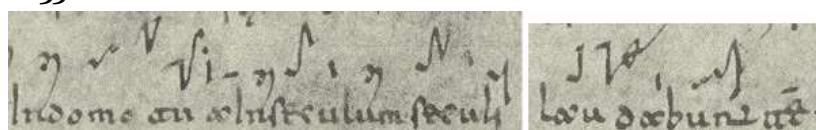 Indomo tua Insęculum sęculi
lau dabunt te